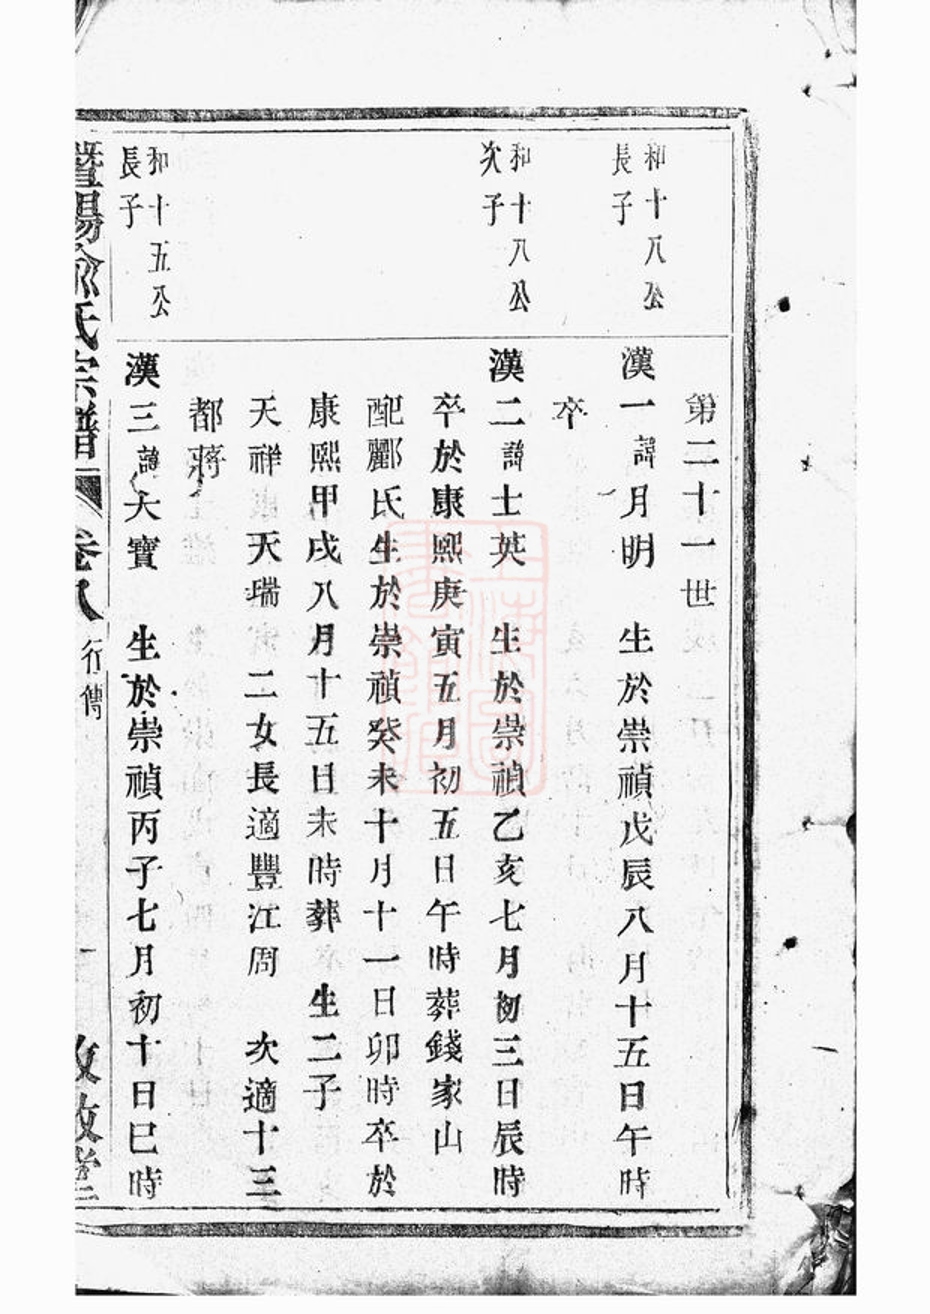 第二十一世
和十八公
長子
漢一諱月明 生於崇禎戊辰八月十五日午時
卒
和十八公
次子
漢二諱士英 生於崇禎乙亥七月初三日辰時
卒於康熙庚寅五月初五日午時葬錢家山
配酈氏生於崇禎癸未十月十一日卯時卒於
康熙甲戌八月十五日未時葬 生二子
天祥 天瑞 二女長適豐江周 次適十三
都蔣
和十五公
長子
漢三諱大寶 生於崇禎丙子七月初十日巳時
暨陽俞氏宗譜 卷八 行傳 一